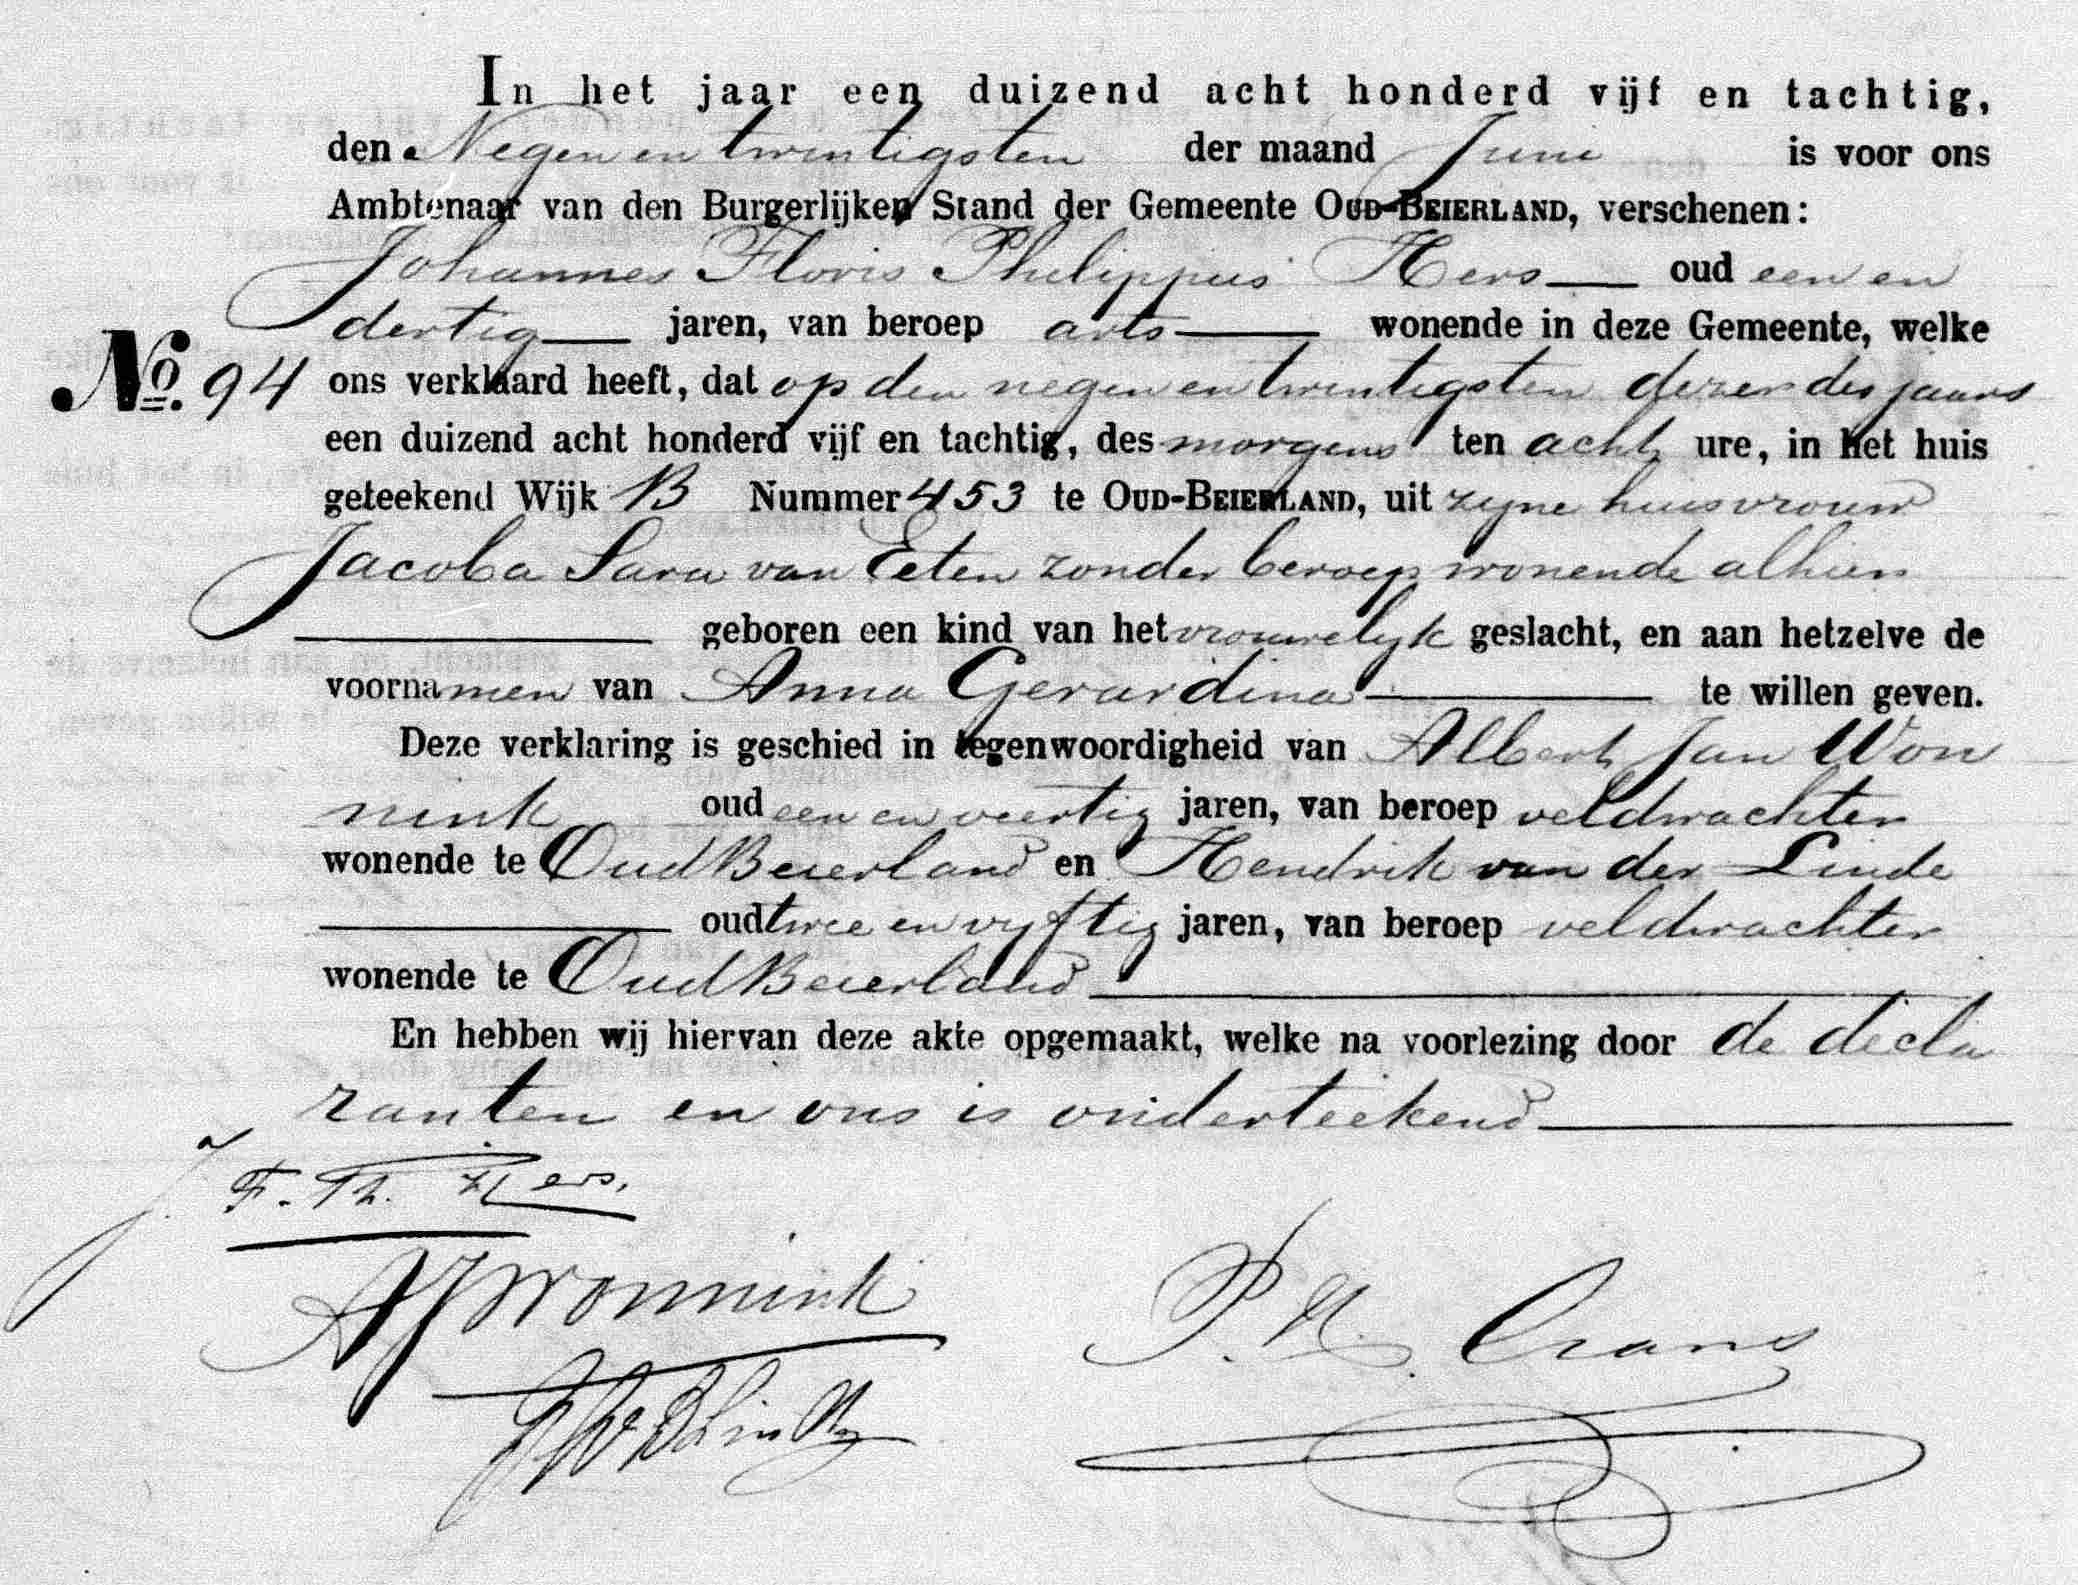 In het jaar een duizend acht honderd vijf en tachtig,
den Negen en twintigsten der maand Juni is voor ons
Ambtenaar van den Burgerlijken Stand der Gemeente OUD-BEIERLAND, verschenen:
Johannes Floris Philippus Hers oud een en
dertig jaren, van beroep arts wonende in deze Gemeente, welke
No. 94 ons verklaard heeft, dat op den negen en twintigsten dezer des jaars
een duizend acht honderd vijf en tachtig, des morgens ten acht ure, in het huis
geteekend Wijk B Nummer 453 te OUD-BEIERLAND, uit zyne huisvrouw
Jacoba Sara van Eeten zonder beroep wonende alhier
geboren een kind van het vrouwelyk geslacht, en aan hetzelve de
voornamen van Anna Gerardina te willen geven.
Deze verklaring is geschied in tegenwoordigheid van Albert Jan Won
nink oud een en veertig jaren, van beroep veldwachter
wonende te Oud Beierland en Hendrik van der Linde
oud twee en vyftig jaren, van beroep veldwachter
wonende te Oud Beierland
En hebben wij hiervan deze akte opgemaakt, welke na voorlezing door de decla
ranten en ons is onderteekend
J. F. Ph. Hers.
AJ Wonnink